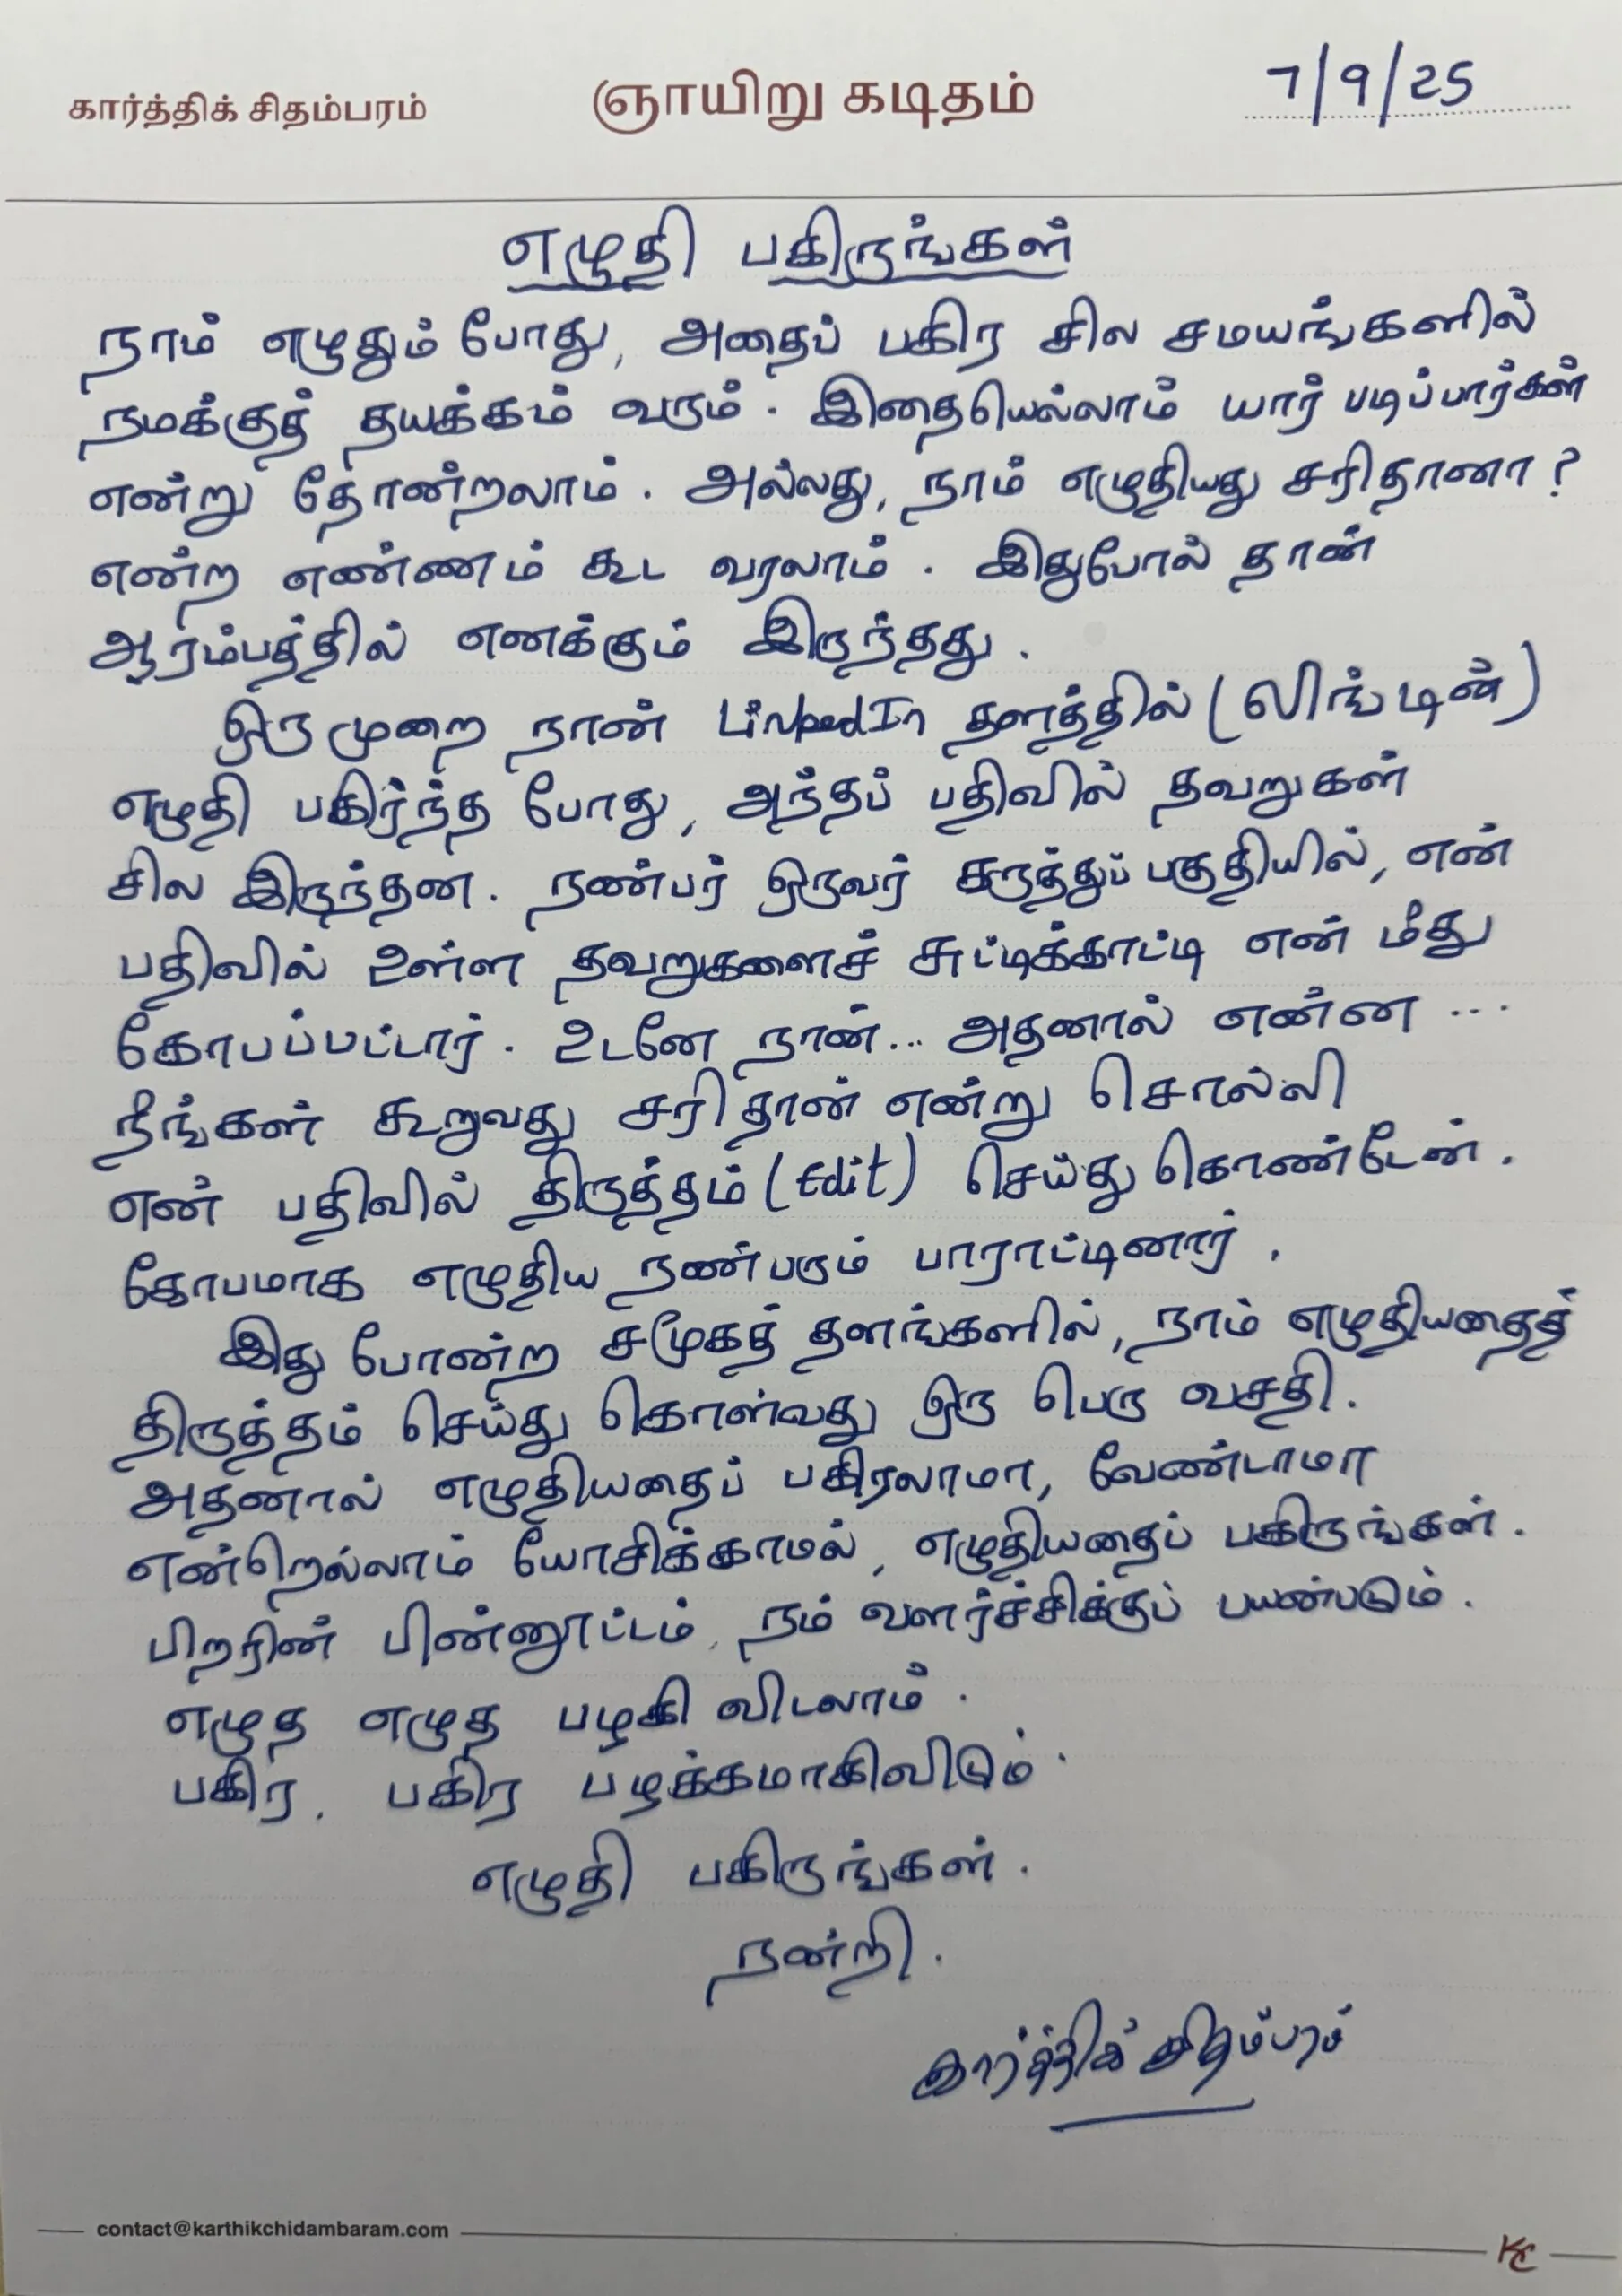 கார்த்திக் சிதம்பரம்
ஞாயிறு கடிதம்
7/9/25
எழுதி பகிருங்கள்
நாம் எழுதும் போது, அதைப் பகிர சில சமயங்களில்
நமக்குத் தயக்கம் வரும். இதையெல்லாம் யார் படிப்பார்கள்
என்று தோன்றலாம். அல்லது, நாம் எழுதியது சரிதானா?
என்ற எண்ணம் கூட வரலாம். இதுபோல் தான்
ஆரம்பத்தில் எனக்கும் இருந்தது.
ஒரு முறை நான் LinkedIn தளத்தில் (லிங்டின்)
எழுதி பகிர்ந்த போது, அந்தப் பதிவில் தவறுகள்
சில இருந்தன. நண்பர் ஒருவர் கருத்துப் பகுதியில், என்
பதிவில் உள்ள தவறுகளைச் சுட்டிக்காட்டி என் மீது
கோபப்பட்டார். உடனே நான்... அதனால் என்ன ...
நீங்கள் கூறுவது சரிதான் என்று சொல்லி
என் பதிவில் திருத்தம் (Edit) செய்து கொண்டேன்.
கோபமாக எழுதிய நண்பரும் பாராட்டினார்.
இது போன்ற சமூகத் தளங்களில், நாம் எழுதியதைத்
திருத்தம் செய்து கொள்வது ஒரு பெரு வசதி.
அதனால் எழுதியதைப் பகிரலாமா, வேண்டாமா
என்றெல்லாம் யோசிக்காமல், எழுதியதைப் பகிருங்கள்.
பிறரின் பின்னூட்டம், நம் வளர்ச்சிக்குப் பயன்படும்.
எழுத எழுத பழகி விடலாம்.
பகிர, பகிர பழக்கமாகிவிடும்.
எழுதி பகிருங்கள்.
நன்றி.
கார்த்திக் சிதம்பரம்
contact@karthikchidambaram.com
KC